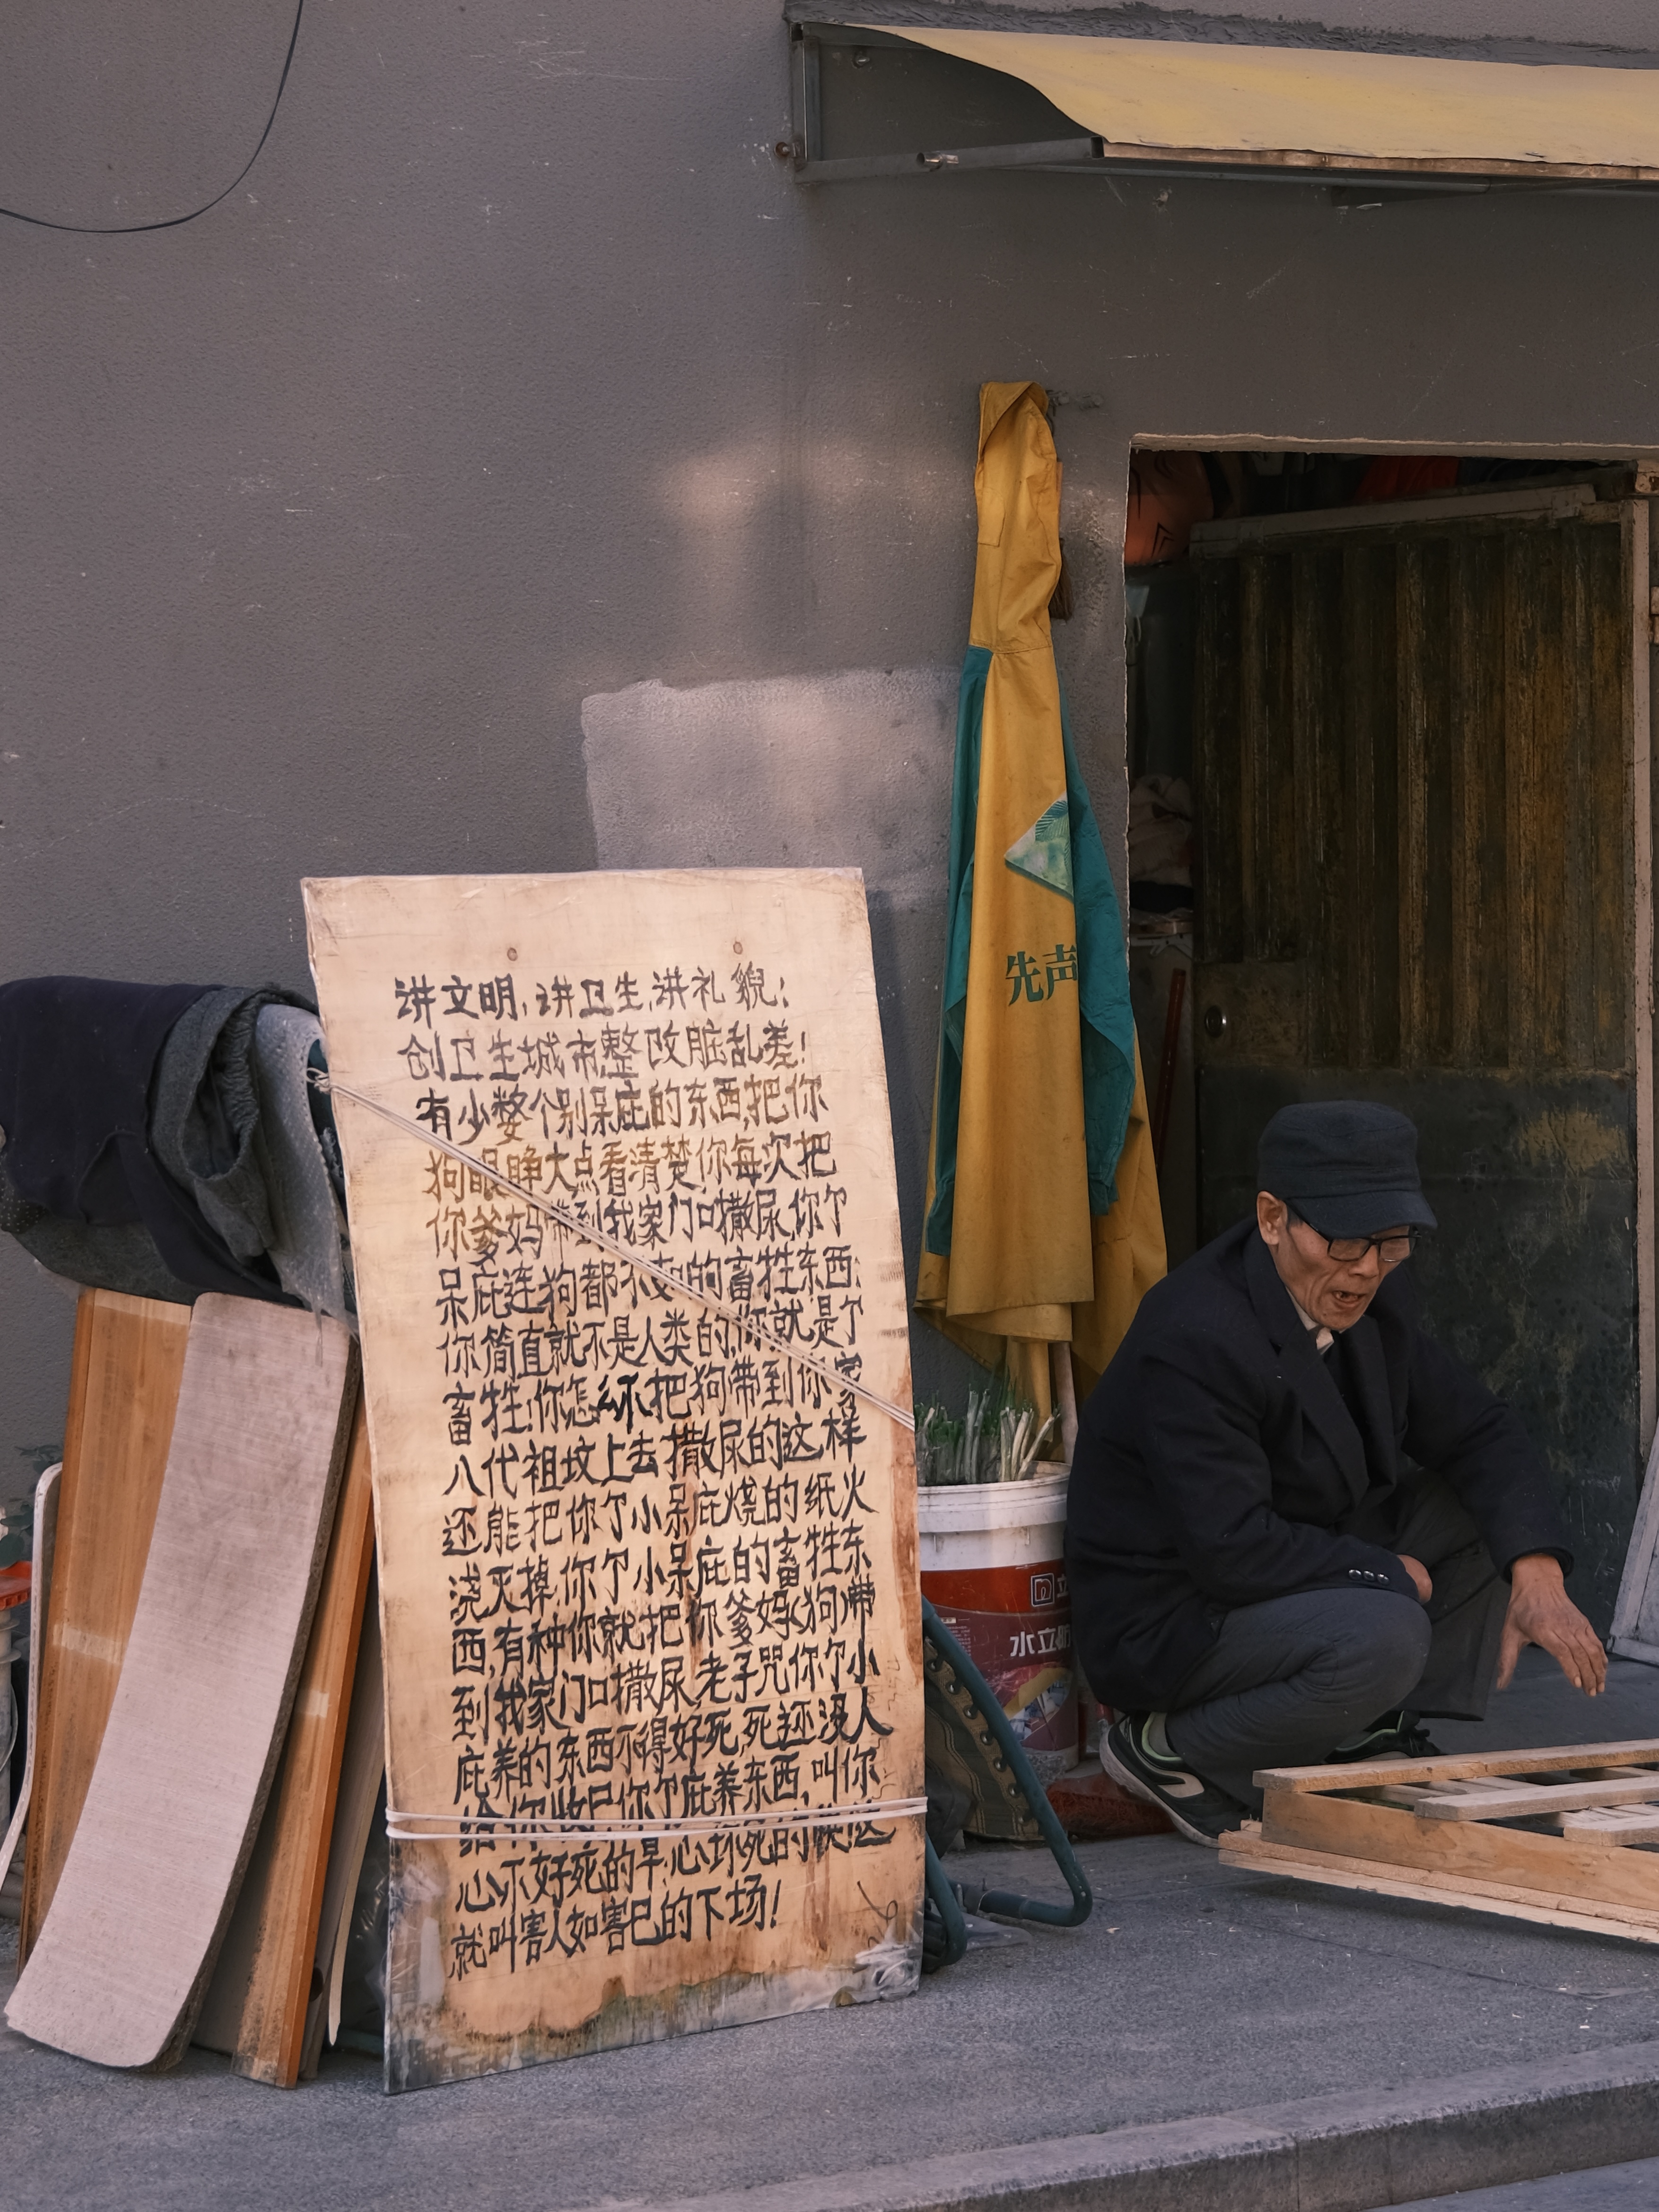 讲文明,讲卫生,讲礼貌;
创卫生城市,整改脏乱差!
有少数个别呆庇的东西,把你
狗眼睁大点看清楚你每次把
你爹妈带到我家门口撒尿,你个
呆庇连狗都不如的畜牲东西:
你简直就不是人类的,你就是个
畜牲!你怎么不把狗带到你家
八代祖坟上去撒尿的这样
还能把你个小呆庇烧的纸火
浇灭掉,你个小呆庇的畜牲东
西,有种你就把你爹妈狗带
到我家门口撒尿老子咒你个小
庇养的东西不得好死,死还没人
给你收尸你个庇养东西,叫你
心不好死的早,心坏死的快!这
就叫害人如害己的下场!
先声
水立